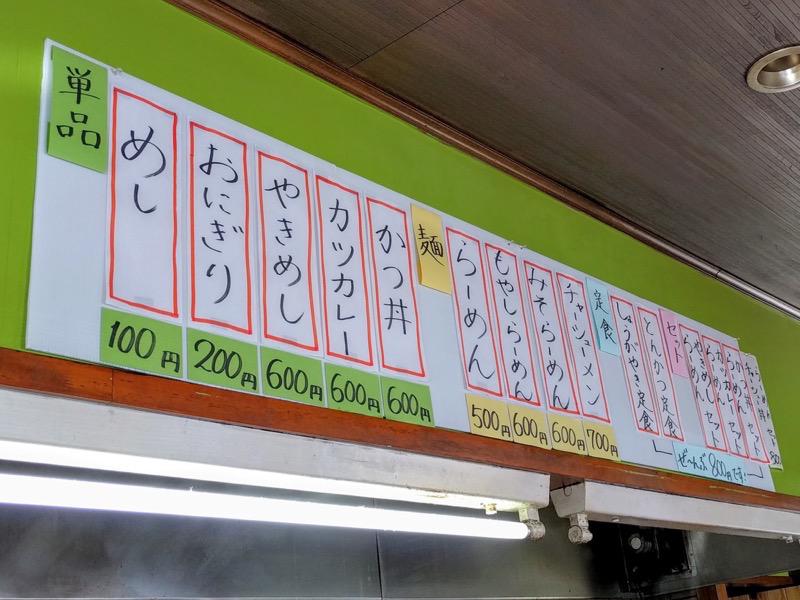 単品
めし
100円
おにぎり
200円
やきめし
600円
カツカレー
600円
かつ丼
600円
麺
らーめん
500円
もやしらーめん
600円
みそらーめん
600円
チャーシューメン
700円
定食
しょうがやき定食
とんかつ定食
セット
やきめし
らーめん セット
カツカレー
らーめん セット
かつ丼
らーめん セット
ぜ〜んぶ800円です!